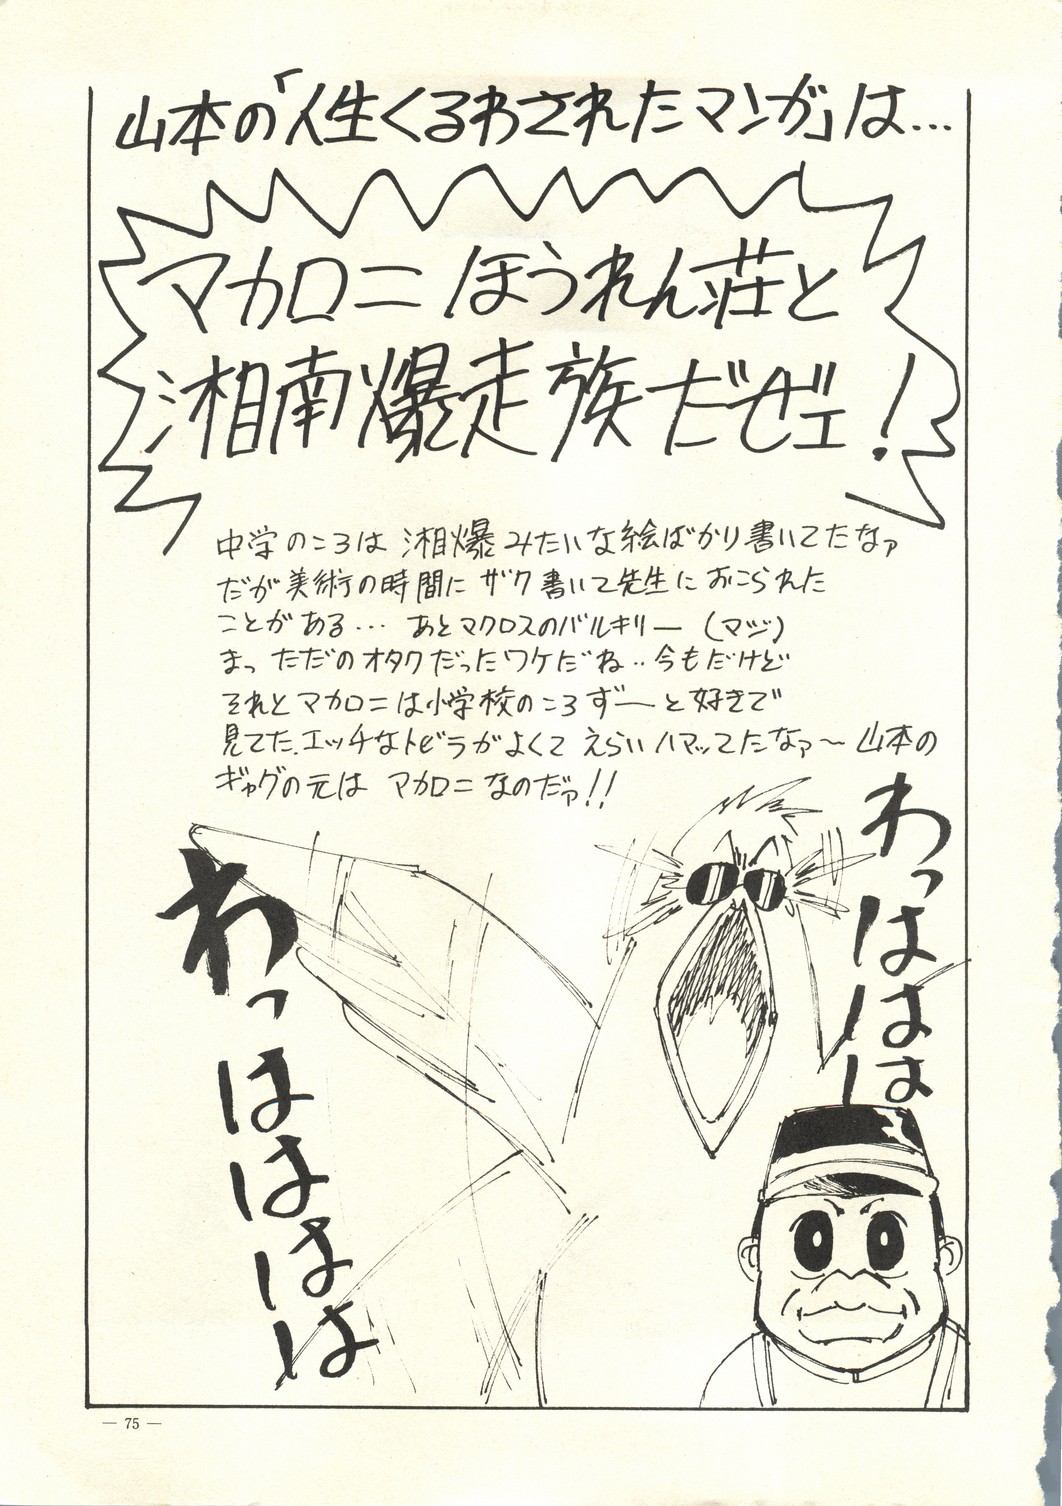 山本の「人生くるわされたマンガ」は…
マカロニほうれん荘と
湘南爆走族だぜェ！
中学のころは 湘爆みたいな絵ばかり書いてたなァ
だが美術の時間に ザク書いて先生におこられた
ことがある… あとマクロスのバルキリー（マジ）
まっ ただのオタクだったワケだね‥今もだけど
それとマカロニは小学校のころずーと好きで
見てた.エッチなトビラがよくて えらいハマッてたなァ〜 山本の
ギャグの元は マカロニなのだァ!!
わっははは
わっはははは
— 75 —